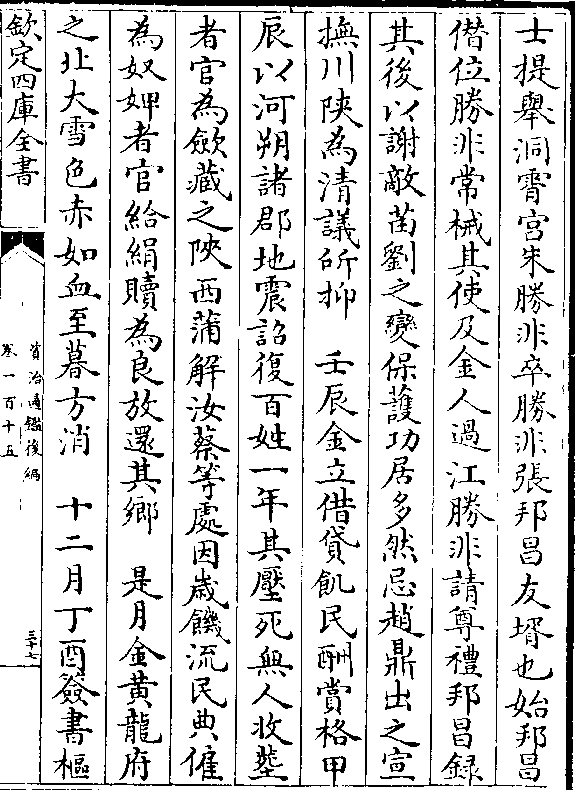 士提舉洞霄宮朱勝非卒勝非張邦昌友壻也始邦昌
僣位勝非常械其使及金人過江勝非請尊禮邦昌錄
其後以謝敵苗劉之變保䕶功居多然忌趙鼎出之宣
撫川陜為清議所抑　壬辰金立借貸飢民酬賞格甲
辰以河朔諸郡地震詔復百姓一年其壓死無人收塟
者官為歛藏之陜西蒲解汝蔡等處因歲饑流民典僱
為奴婢者官給絹贖為良放還其鄉　是月金黃龍府
之北大雪色赤如血至暮方消　十二月丁酉簽書樞
欽定四庫全書
資治通鑑後編
卷一百十五
三十七